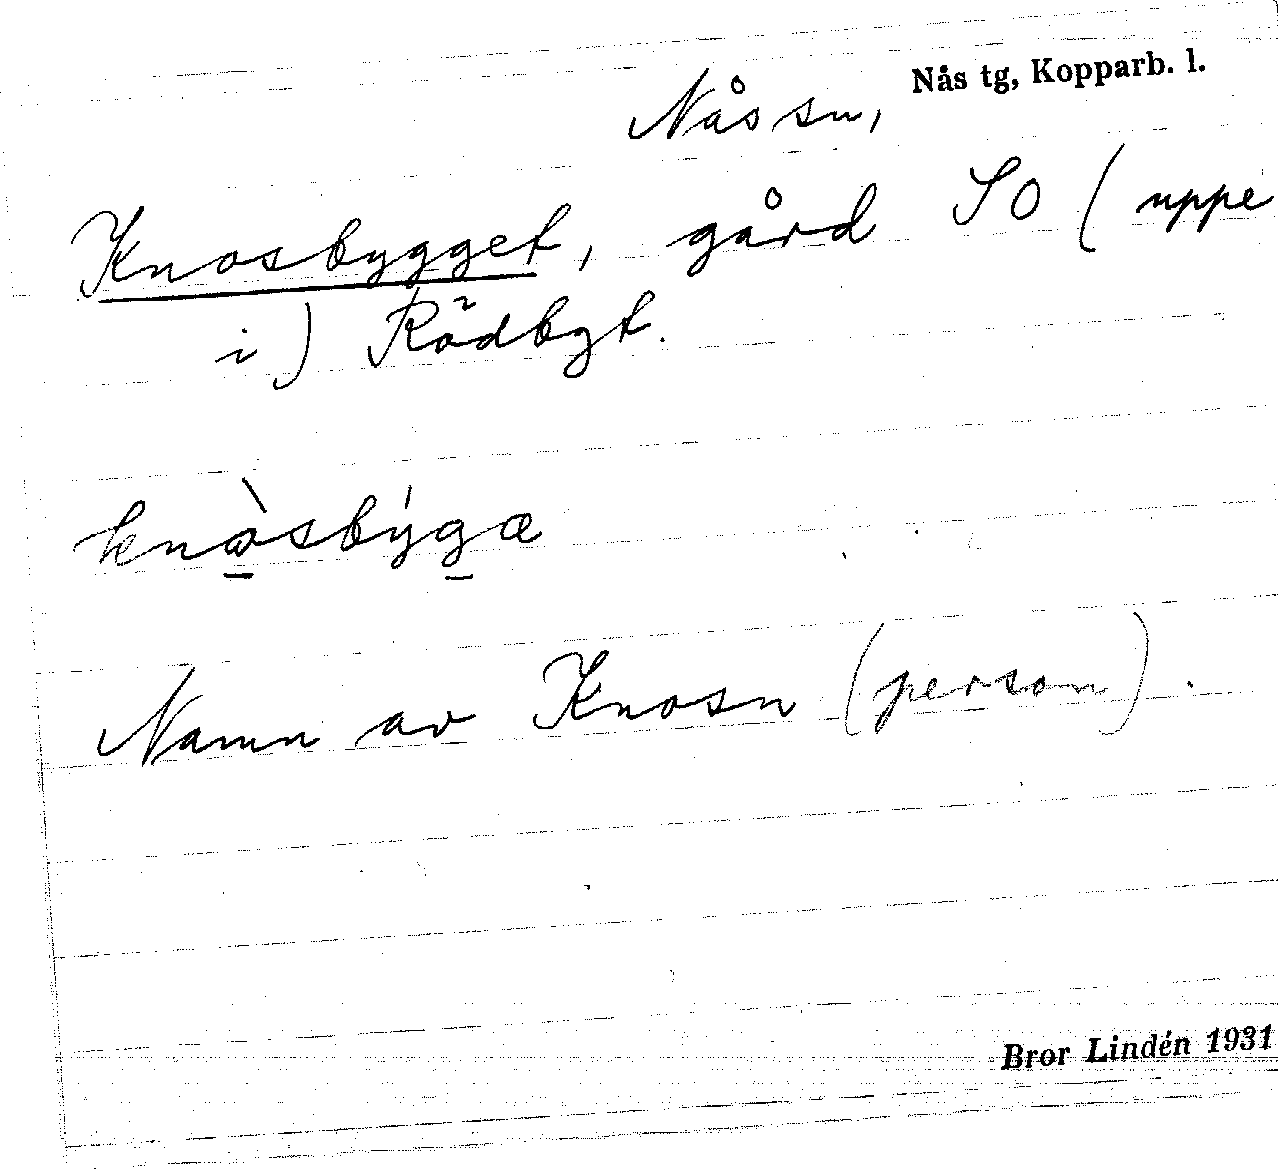 Nås tg, Kopparb. l.
Nås sn,
Knosbygget, gård SO (uppe
i) Rödbgt.
knòsbýgæ
Namn av Knosn (person).
Bror Lindén 1931